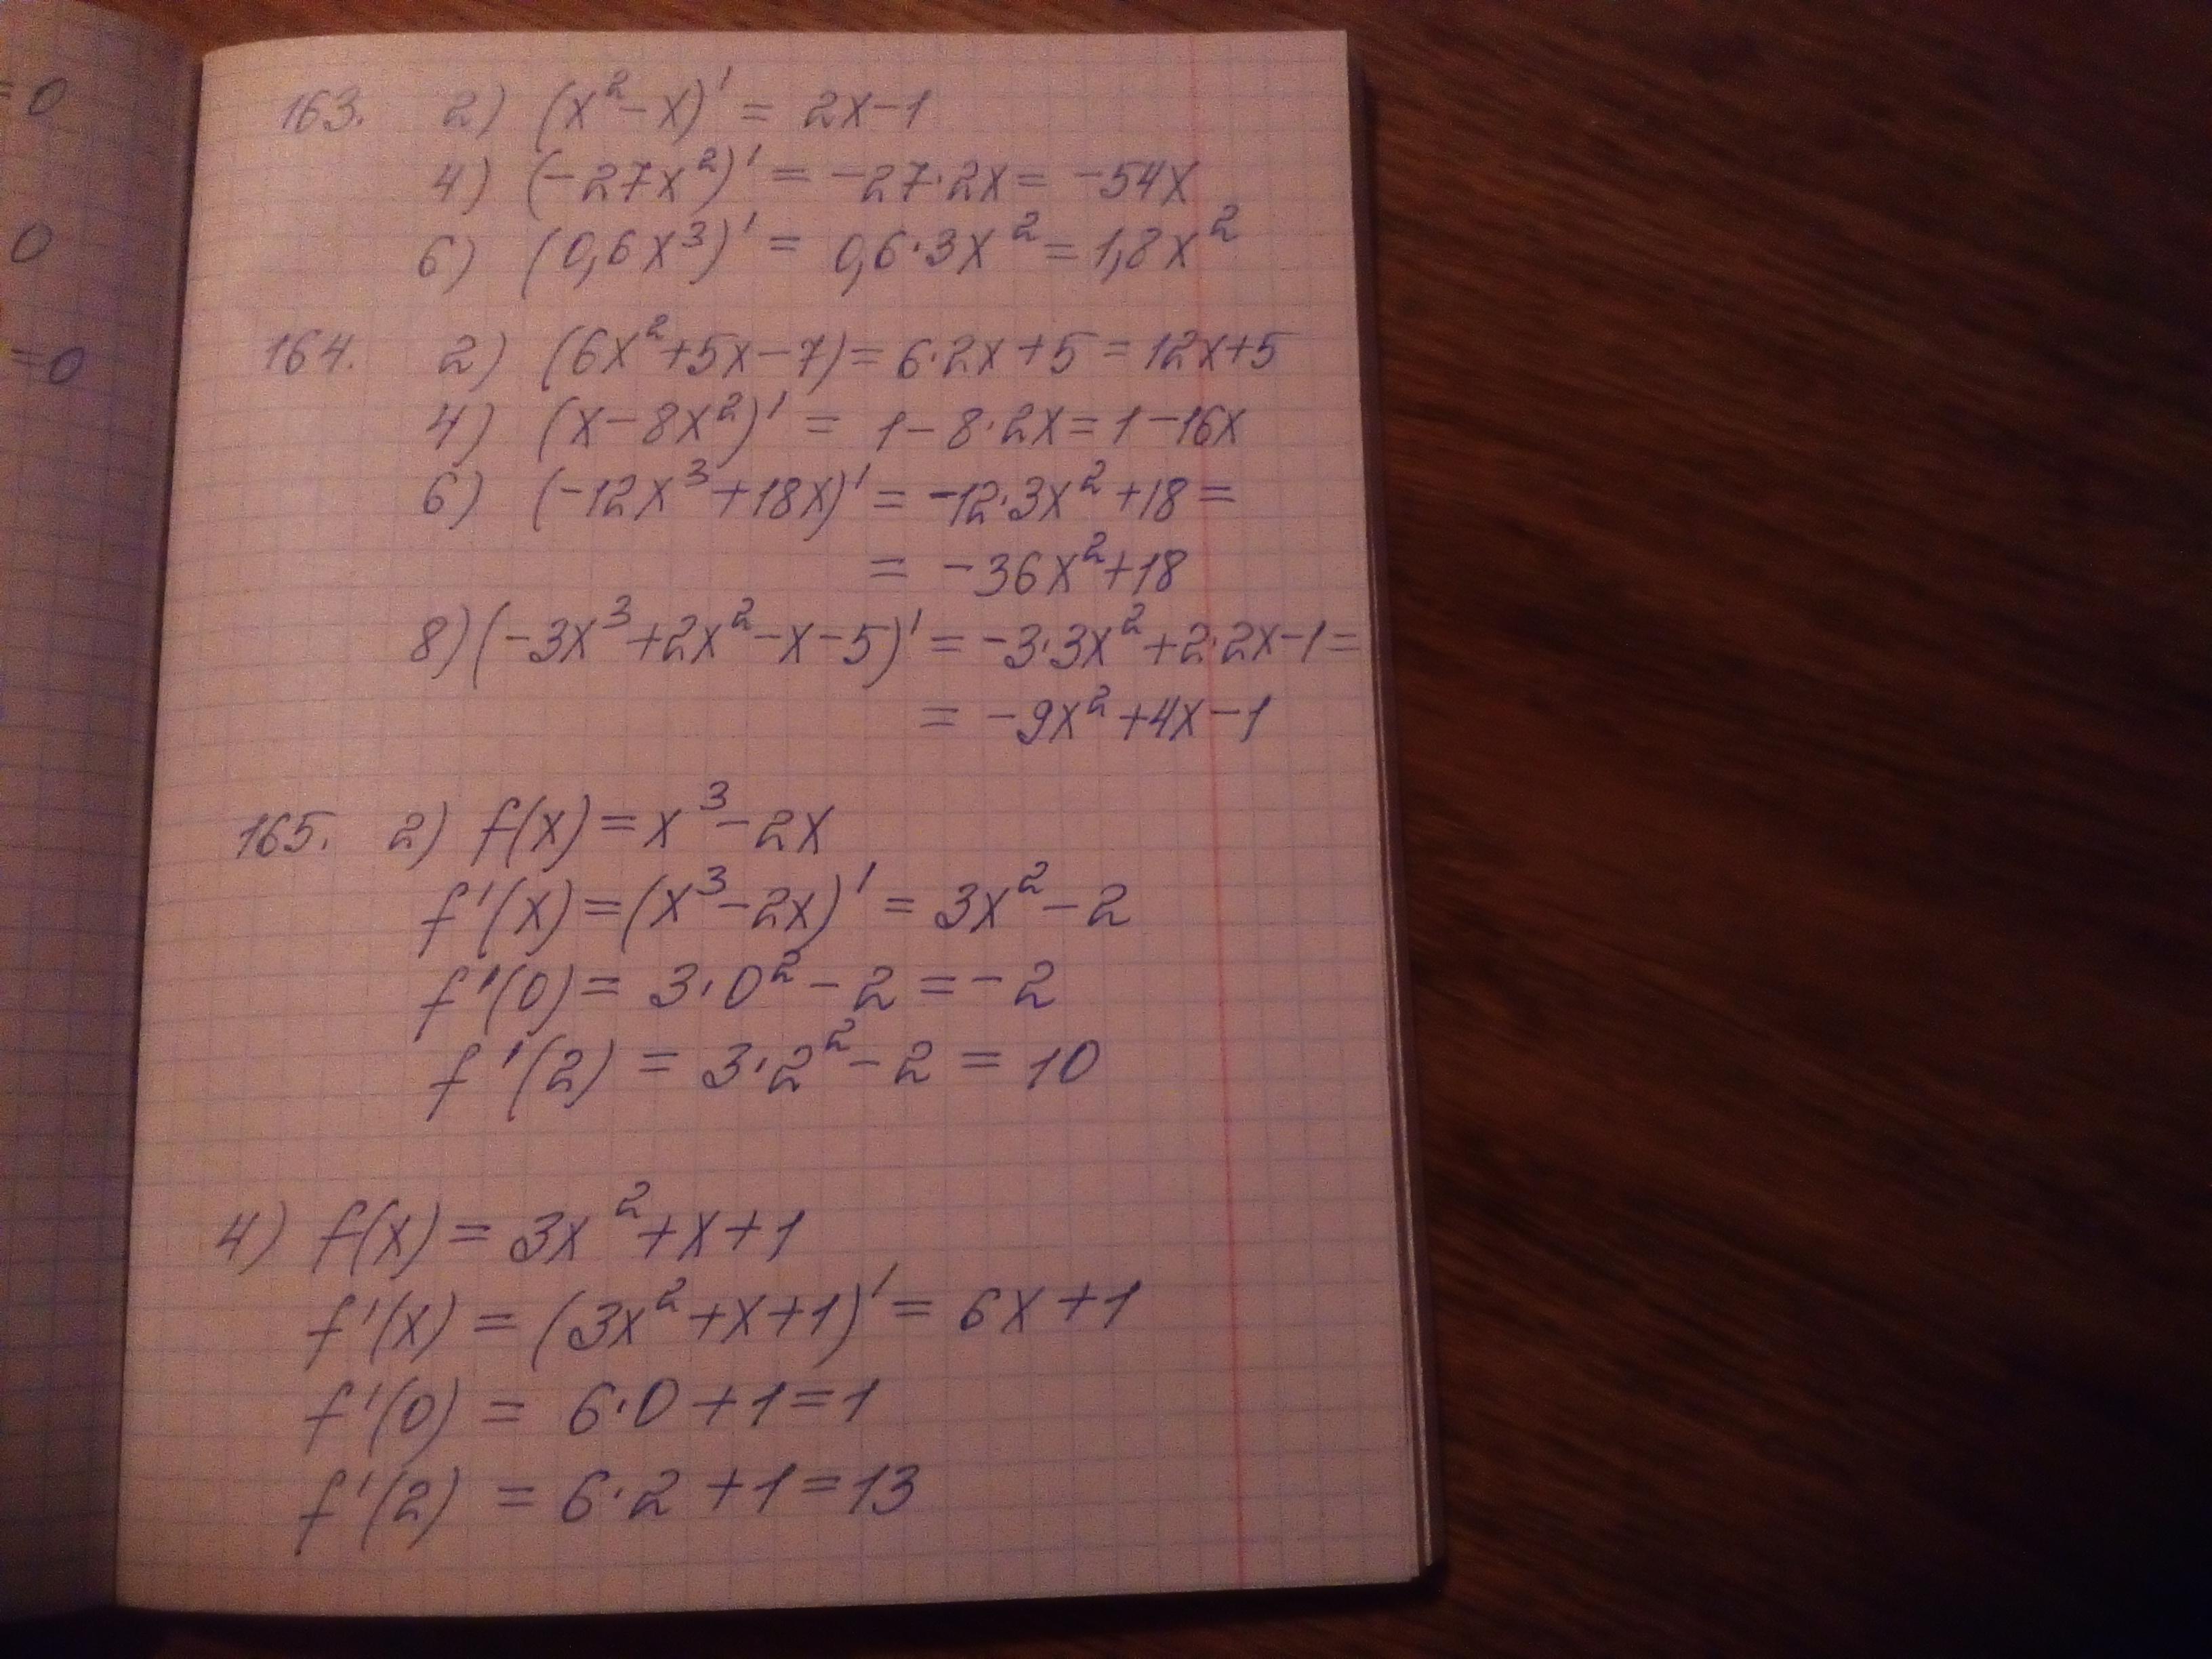 =0
0
=0
163. 2) (x²-x)' = 2x-1
4) (-27x²)' = -27·2x = -54x
6) (0,6x³)' = 0,6·3x² = 1,8x²
164. 2) (6x²+5x-7) = 6·2x+5 = 12x+5
4) (x-8x²)' = 1-8·2x = 1-16x
6) (-12x³+18x)' = -12·3x²+18 =
= -36x²+18
8) (-3x³+2x²-x-5)' = -3·3x²+2·2x-1 =
= -9x²+4x-1
165. 2) f(x) = x³-2x
f'(x) = (x³-2x)' = 3x²-2
f'(0) = 3·0²-2 = -2
f'(2) = 3·2²-2 = 10
4) f(x) = 3x²+x+1
f'(x) = (3x²+x+1)' = 6x+1
f'(0) = 6·0+1=1
f'(2) = 6·2+1=13